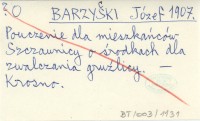 ? O BARZYŃSKI Józef 1907.
Pouczenie dla mieszkańców
Szczawnicy o środkach dla
zwalczania gruźlicy. —
Krosno.
BT/003/1131